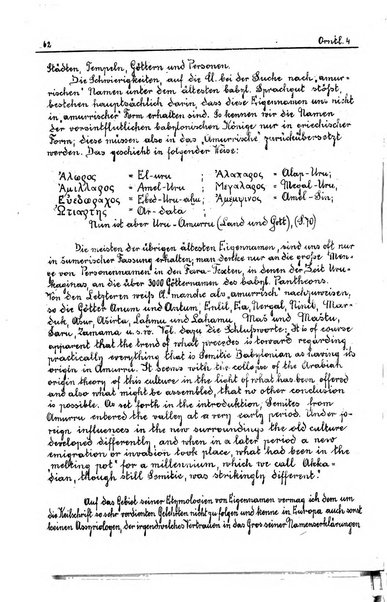 62 Orntl. 4
Städten, Tempeln, Göttern und Personen.
Die Schwierigkeiten, auf die Ü. bei der Suche nach „amur-
rischen" Namen unter dem ältesten babyl. Sprachgut stößt,
bestehen hauptsächlich darin, dass diese Eigennamen uns nicht
in „amurrischer" Form erhalten sind. So kennen wir die Namen
der vorsintflutlichen babylonischen Könige nur in griechischer
Form; diese müssen also in das „Amurrische" zurückübersetzt
werden. Das geschieht in folgender Weise:
Ἄλωρος = El-uru ; Ἀλάχαρος = Alap-Uru;
Ἀμίλλαρος = Amel-Uru ; Μεγάλαρος = Megal-Uru,
Εὐεδώραχος = Ebed-Uru-aḫu; Ἀμεμψινος = Amel-Sin;
Ὠτιάρτης = Or-data ;
Nun ist aber Uru = Amurru (Land und Gott), (S. 70)
Die meisten der übrigen ältesten Eigennamen, sind uns oft nur
in sumerischer Fassung erhalten; man denke nur an die große Men-
ge von Personennamen in den Fara-Texten, in denen der Zeit Uru-
kaginas, an die über 3000 Götternamen des babyl. Pantheons.
Von den Letzteren weiß manche als „amurrisch" nachzuweisen,
so die Götter Anum und Antum, Enlil, Ea, Nergal, Ninib, Mar-
duk, Ašur, Aširta, Laḫmu und Laḫamu, Maš und Maštu,
Šaru, Zamama u.s.w. Vgl. dazu die Schlußworte: It is of course
apparent that the trend of what precedes is toward regarding
practically everything that is Semitic Babylonian as having its
origin in Amurru. It seems with the collapse of the Arabian
origin theory of this culture in the light of what has been offered
and also what might be assembled, that no other conclusion
is possible. As set forth in the introduction, Semites from
Amurru entered the valley at a very early period. Under fo-
reign influences in the new surroundings the old culture
developed differently, and when in a later period a new
emigration or invasion took place, what had been in the
melting pot for a millennium, which we call Akka-
dian, though still Semitic, was strikingly different."
Auf das Gebiet seiner Etymologien von Eigennamen vermag ich dem um
die Keilschrift so sehr verdienten Gelehrten nicht zu folgen und kenne in Europa auch sonst
keinen Assyriologen, der irgendwelches Vertrauen in das Gros seiner Namenserklärungen